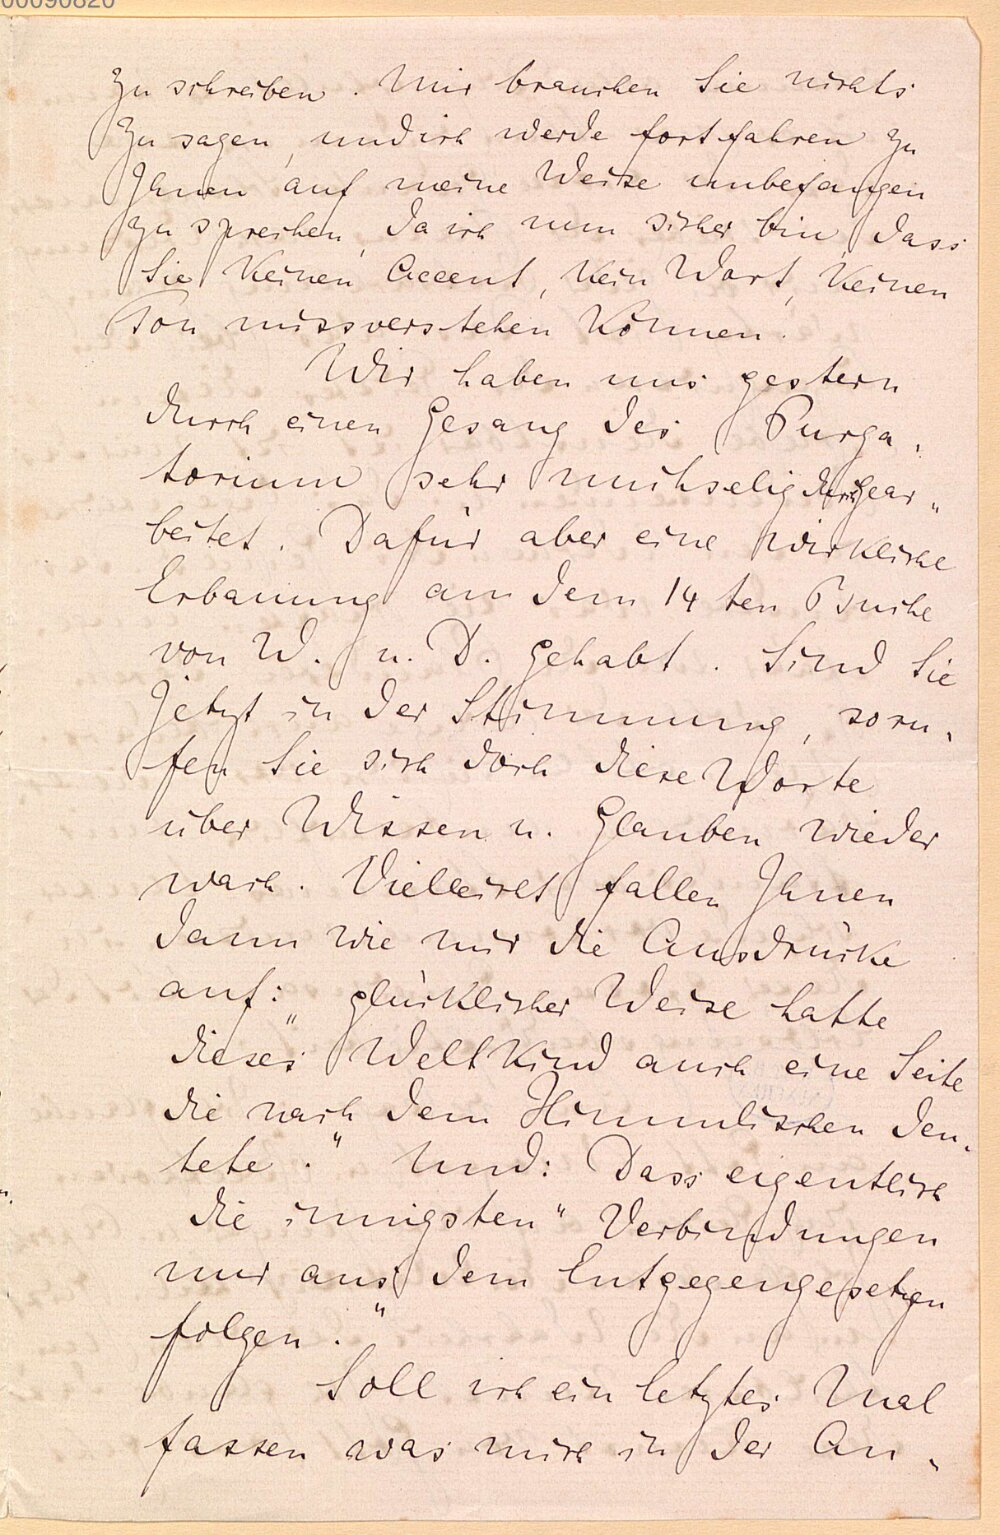 00090820
zu schreiben. Mir brauchen Sie nichts
zu sagen, und ich werde fortfahren zu
Ihnen auf meine Weise unbefangen
zu sprechen, da ich nun sicher bin dass
Sie keinen Accent, kein Wort, keinen
Ton missverstehen können.
Wir haben uns gestern
durch einen Gesang des Purga-
torium sehr mühselig durchgear-
beitet. Dafür aber eine wirkliche
Erbauung an dem 14ten Buche
von W. u. D. gehabt. Sind Sie
jetzt in der Stimmung, so ru-
fen Sie sich doch diese Worte
über Wissen u. Glauben wieder
wach. Vielleicht fallen Ihnen
dann wie mir die Ausdrücke
auf: "glücklicher Weise hatte
dieses Weltkind auch eine Seite
die nach dem Himmlischen deu-
tete." Und: Dass eigentlich
die innigsten "Verbindungen
nur aus dem Entgegengesetzen
folgen."
Soll ich ein letztes Mal
fassen was mich in der An-